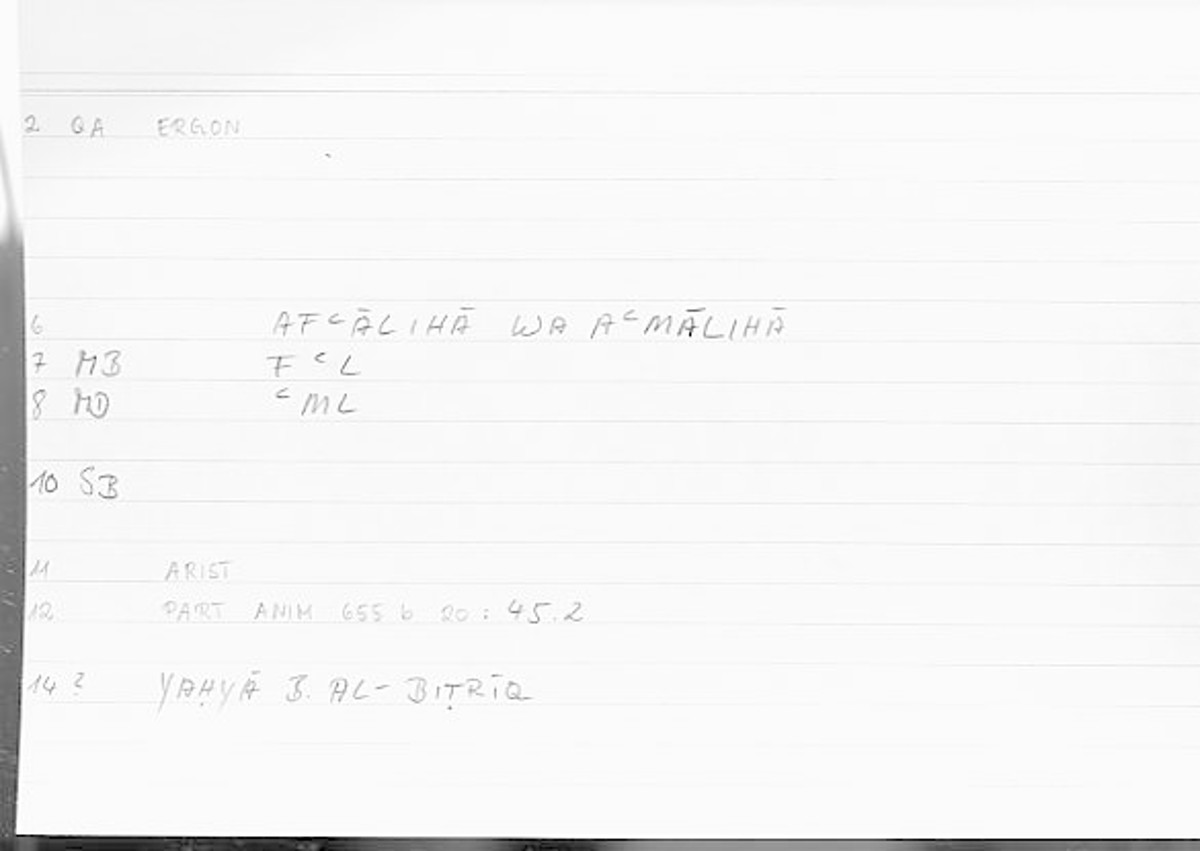 2 QA ERGON
6 AFʿĀLIHĀ WA AʿMĀLIHĀ
7 MB FʿL
8 MD ʿML
10 SB
11 ARIST
12 PART ANIM 655 b 20 : 45.2
14 ? YAḤYĀ B. AL-BIṬRĪQ